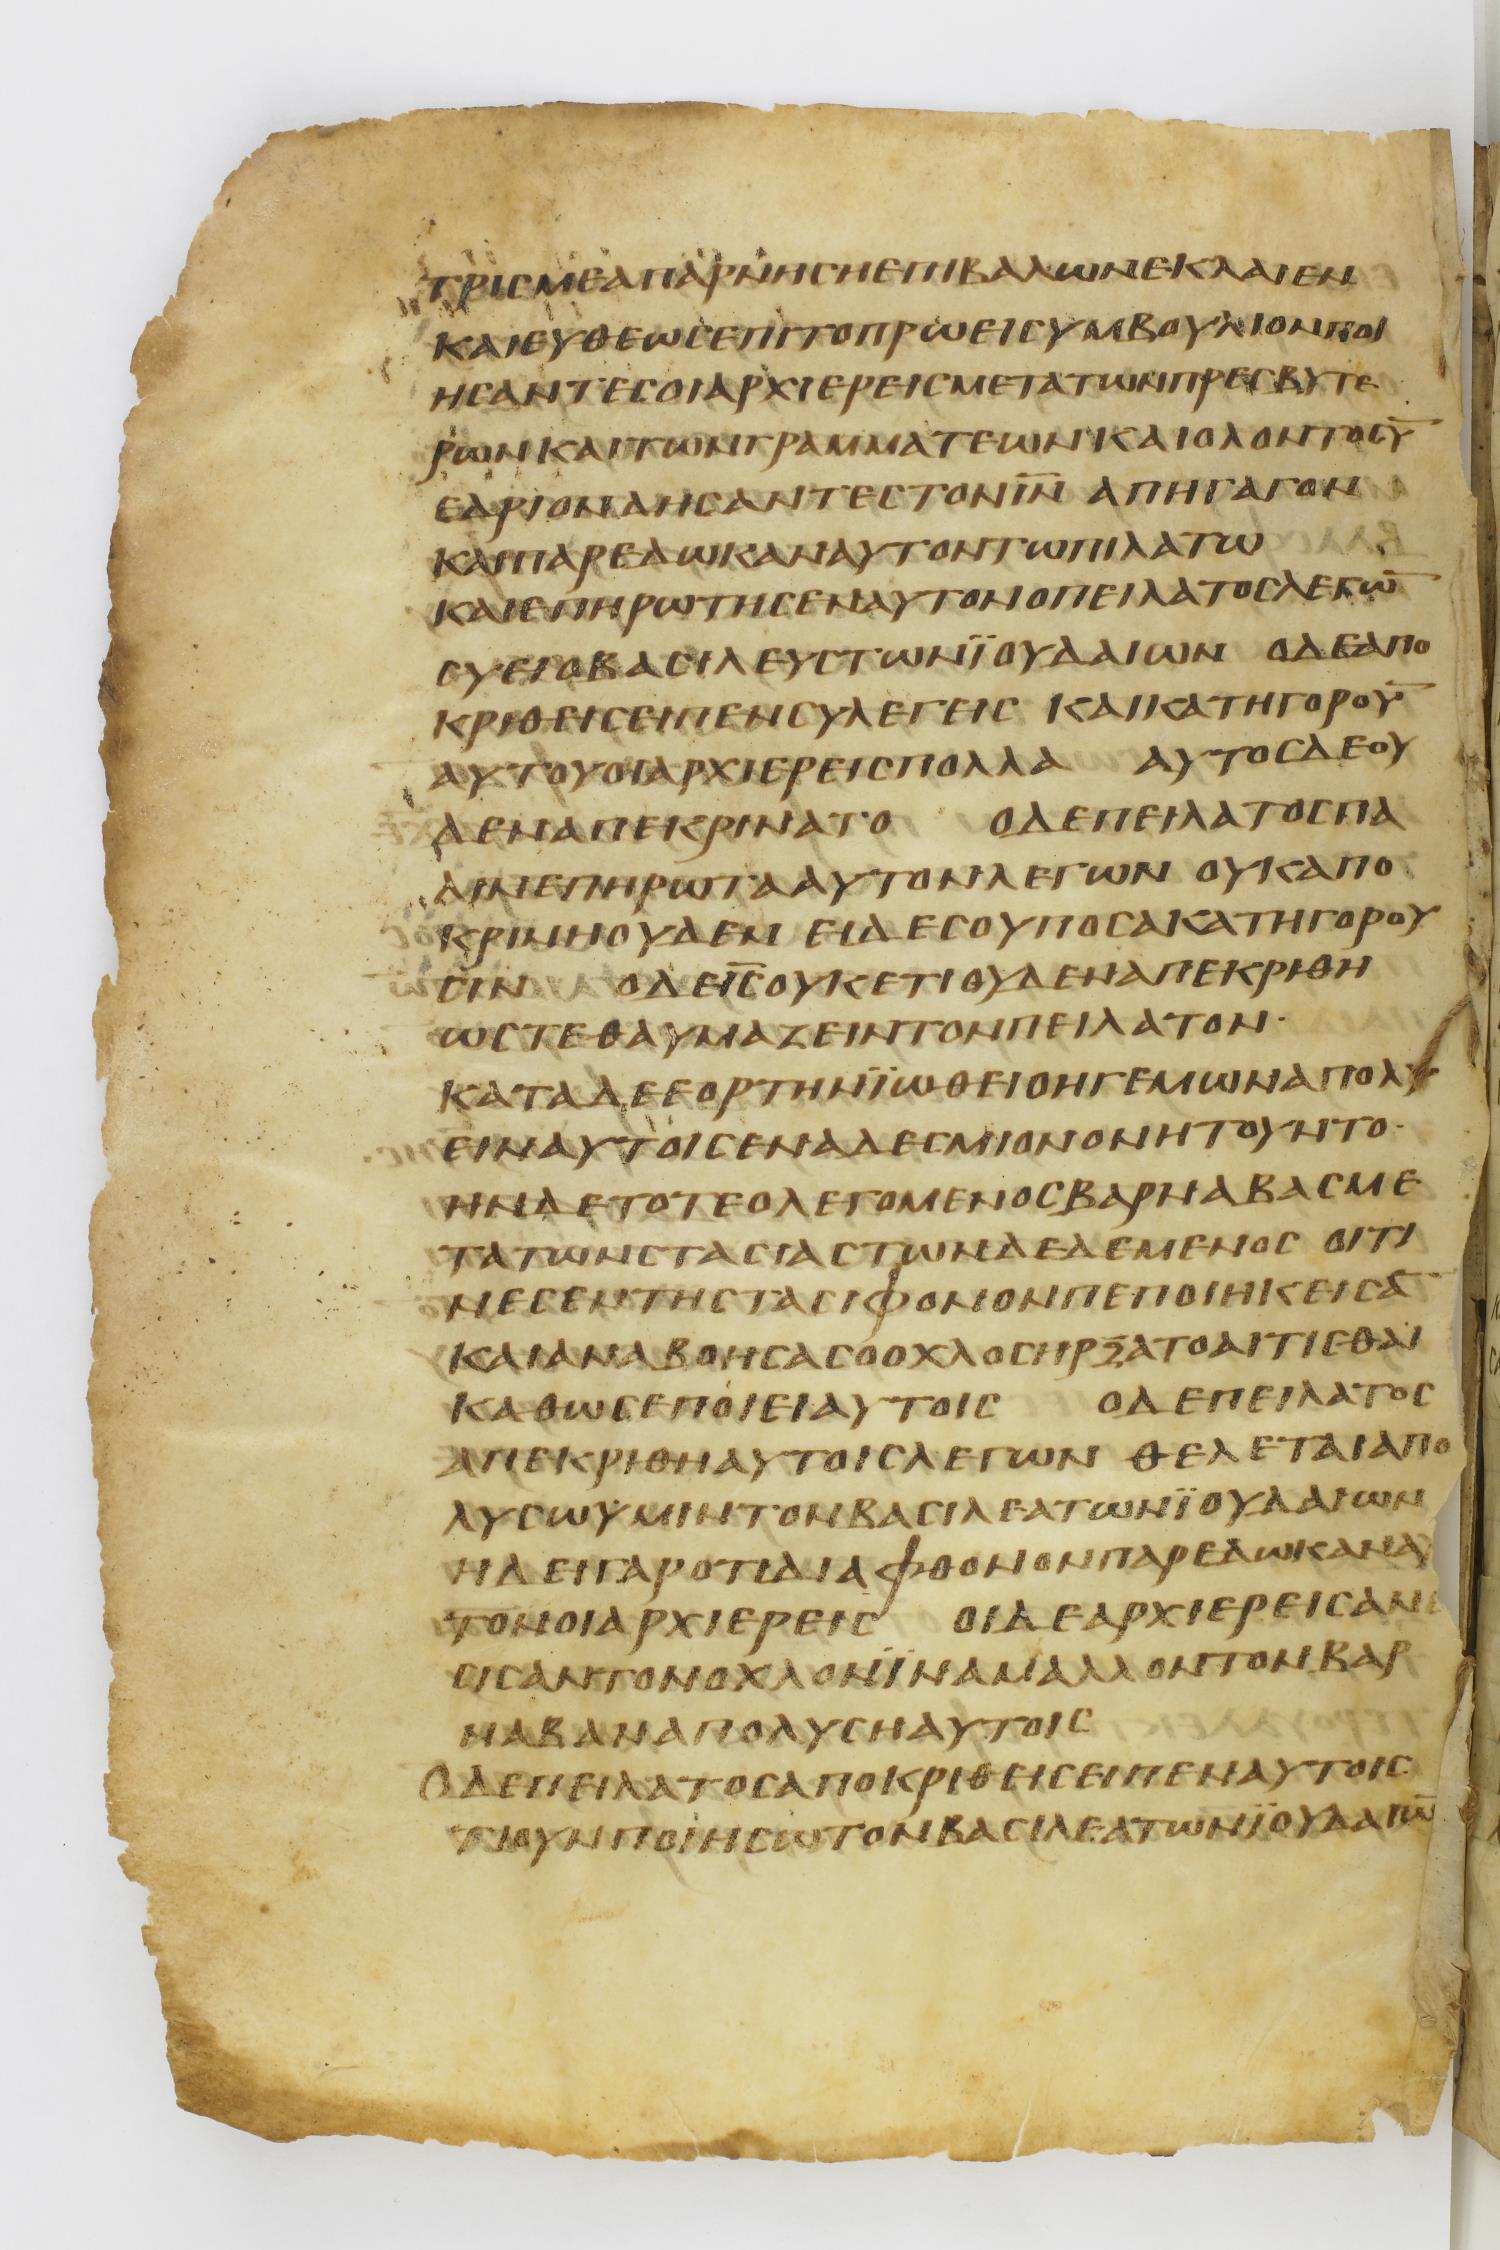 ΤΡΙCΜΕΑΠΑΡΝΗCΗΕΠΙΒΑΛΩΝΕΚΛΑΙΕΝ
ΚΑΙΕΥΘΕΩCΕΠΙΤΟΠΡΩΕΙCΥΜΒΟΥΛΙΟΝΠΟΙ
ΗCΑΝΤΕCΟΙΑΡΧΙΕΡΕΙCΜΕΤΑΤΩΝΠΡΕCΒΥΤΕ
ΡΩΝΚΑΙΤΩΝΓΡΑΜΜΑΤΕΩΝΚΑΙΟΛΟΝΤΟCΥ̅
ΕΔΡΙΟΝΔΗCΑΝΤΕCΤΟΝΙ̅Ν̅ ΑΠΗΓΑΓΟΝ
ΚΑΙΠΑΡΕΔΩΚΑΝΑΥΤΟΝΤΩΠΙΛΑΤΩ
ΚΑΙΕΠΗΡΩΤΗCΕΝΑΥΤΟΝΟΠΕΙΛΑΤΟCΛΕΓΩ̅
CΥΕΙΟΒΑCΙΛΕΥCΤΩΝΪΟΥΔΑΙΩΝ ΟΔΕΑΠΟ
ΚΡΙΘΕΙCΕΙΠΕΝCΥΛΕΓΕΙC ΚΑΙΚΑΤΗΓΟΡΟΥ̅
ΑΥΤΟΥΟΙΑΡΧΙΕΡΕΙCΠΟΛΛΑ ΑΥΤΟCΔΕΟΥ
ΔΕΝΑΠΕΚΡΙΝΑΤΟ ΟΔΕΠΕΙΛΑΤΟCΠΑ
ΛΙΝΕΠΗΡΩΤΑΑΥΤΟΝΛΕΓΩΝ ΟΥΚΑΠΟ
ΚΡΙΝΗΟΥΔΕΝ ΕΙΔΕCΟΥΠΟCΑΚΑΤΗΓΟΡΟΥ
CΙΝ ΟΔΕΙ̅C̅ΟΥΚΕΤΙΟΥΔΕΝΑΠΕΚΡΙΘΗ
ΩCΤΕΘΑΥΜΑΖΕΙΝΤΟΝΠΕΙΛΑΤΟΝ·
ΚΑΤΑΔΕΕΟΡΤΗΝΪΩΘΕΙΟΗΓΕΜΩΝΑΠΟΛΥ
ΕΙΝΑΥΤΟΙCΕΝΑΔΕCΜΙΟΝΟΝΗΤΟΥΝΤΟ·
ΗΝΔΕΤΟΤΕΟΛΕΓΟΜΕΝΟCΒΑΡΝΑΒΑCΜΕ
ΤΑΤΩΝCΤΑCΙΑCΤΩΝΔΕΔΕΜΕΝΟC ΟΙΤΙ
ΝΕCΕΝΤΗCΤΑCΙΦΟΝΟΝΠΕΠΟΙΗΚΕΙCΑ̅
ΚΑΙΑΝΑΒΟΗCΑCΟΟΧΛΟCΗΡΞΑΤΟΑΙΤΙCΘΑΙ
ΚΑΘΩCΕΠΟΙΕΙΑΥΤΟΙC ΟΔΕΠΕΙΛΑΤΟC
ΑΠΕΚΡΙΘΗΑΥΤΟΙCΛΕΓΩΝ ΘΕΛΕΤΑΙΑΠΟ
ΛΥCΩΫΜΙΝΤΟΝΒΑCΙΛΕΑΤΩΝΪΟΥΔΑΙΩΝ
ΗΔΕΙΓΑΡΟΤΙΔΙΑΦΘΟΝΟΝΠΑΡΕΔΩΚΑΝΑΥ
ΤΟΝΟΙΑΡΧΙΕΡΕΙC ΟΙΔΕΑΡΧΙΕΡΕΙCΑΝΕ
CΙCΑΝΤΟΝΟΧΛΟΝΪΝΑΜΑΛΛΟΝΤΟΝΒΑΡ
ΝΑΒΑΝΑΠΟΛΥCΗΑΥΤΟΙC
ΟΔΕΠΕΙΛΑΤΟCΑΠΟΚΡΙΘΕΙCΕΙΠΕΝΑΥΤΟΙC
ΤΙΟΥΝΠΟΙΗCΩΤΟΝΒΑCΙΛΕΑΤΩΝΪΟΥΔΑΙΩ̅